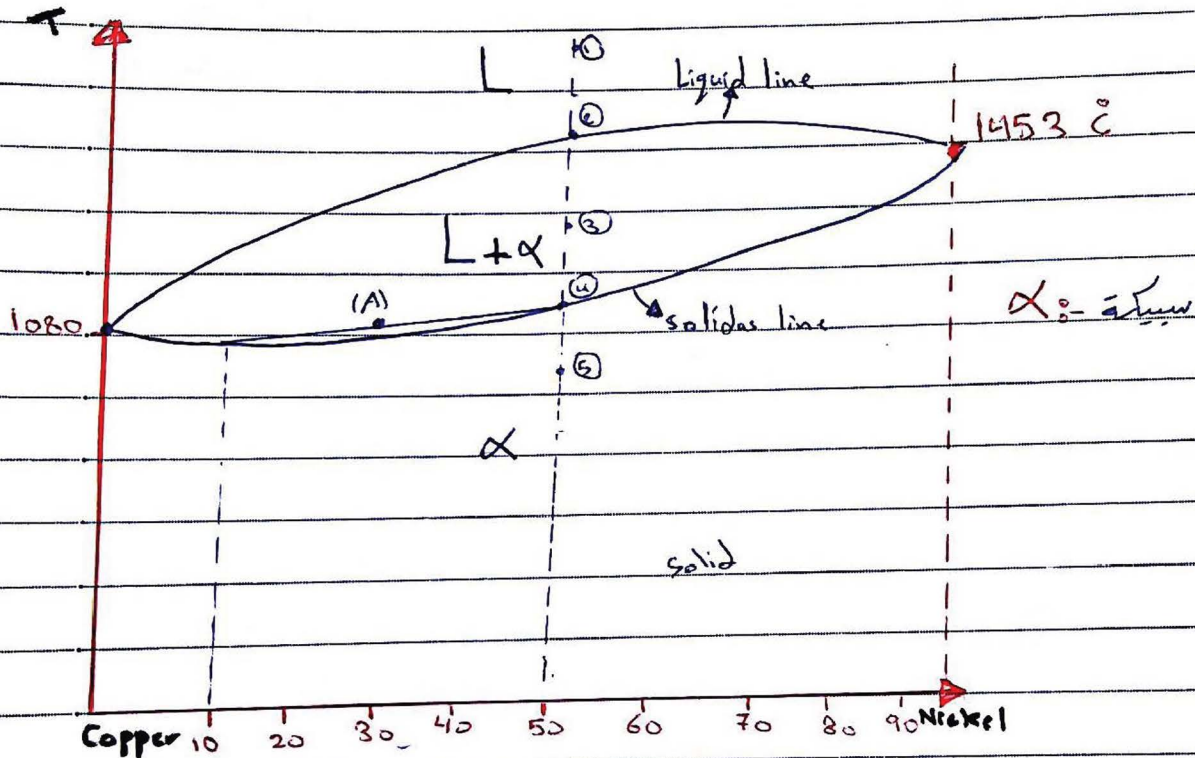 T
①
L
Liquid line
②
1453 c°
③
L + α
(A)
④
1080
solidas line
α :- سبيكة
⑤
α
solid
Copper 10 20 30 40 50 60 70 80 90 Nickel